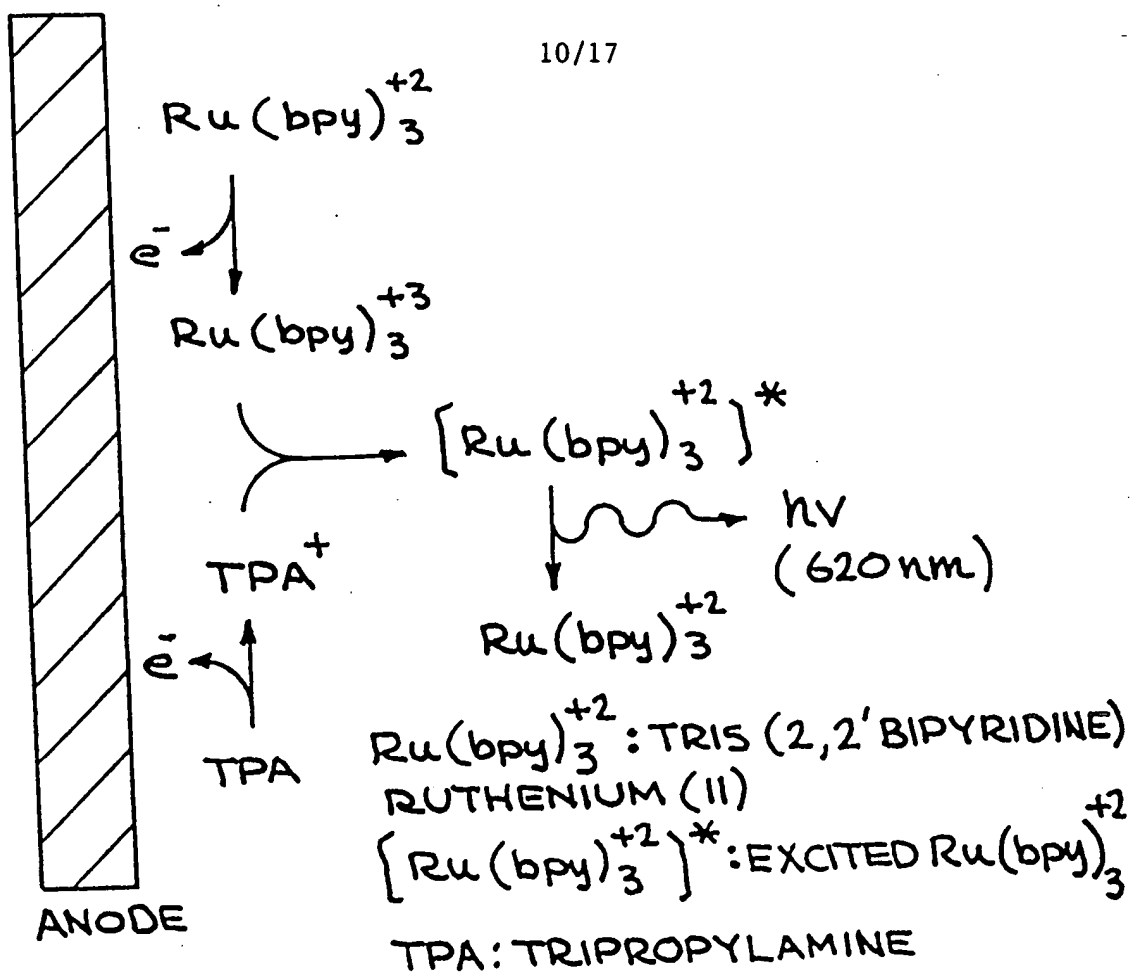 10/17
Ru(bpy)₃⁺²
e⁻
Ru(bpy)₃⁺³
[Ru(bpy)₃⁺²]*
hν
(620nm)
TPA⁺
Ru(bpy)₃⁺²
e⁻
TPA
Ru(bpy)₃⁺²: TRIS (2,2' BIPYRIDINE)
RUTHENIUM (II)
[Ru(bpy)₃⁺²]*: EXCITED Ru(bpy)₃⁺²
ANODE
TPA: TRIPROPYLAMINE